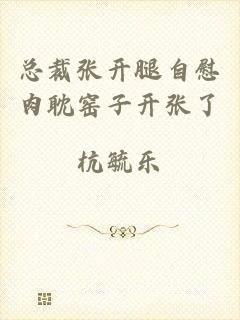 总裁张开腿自慰
肉耽窑子开张了
杭毓乐